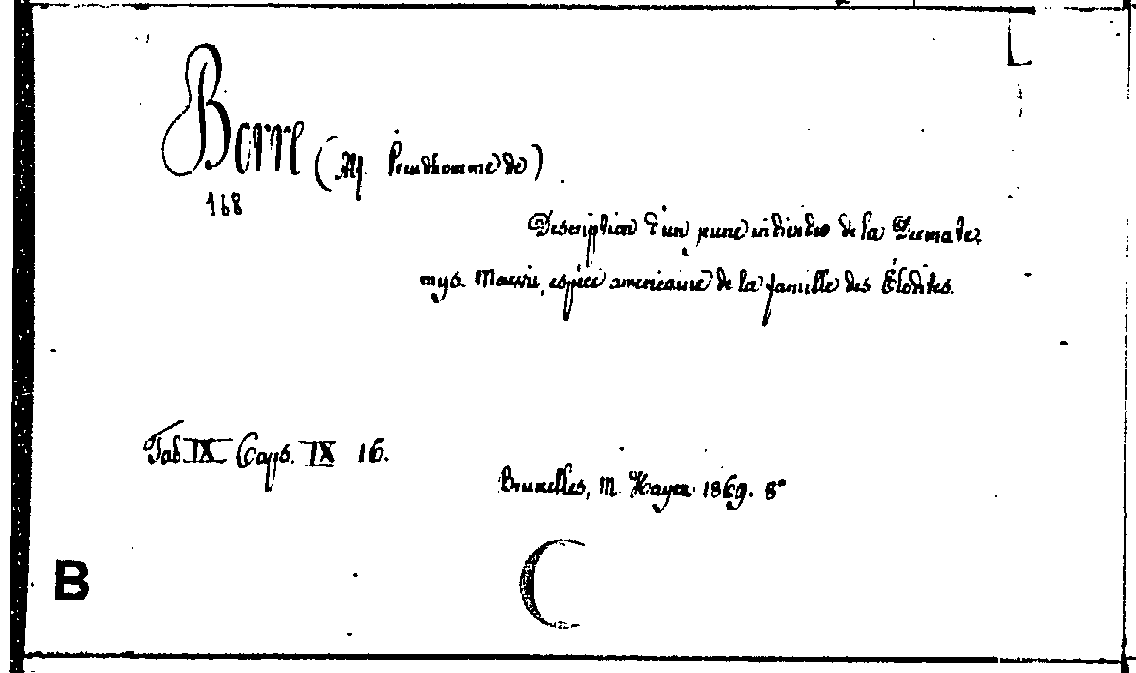 Borre (Alf. Preudhomme de)
168
Description d'un jeune individu de la Dermate-
mys Mawii, espèce américaine de la famille des Élodites.
Tab IX Caps. IX 16.
Bruxelles, M. Hayez 1869. 8°
B
C